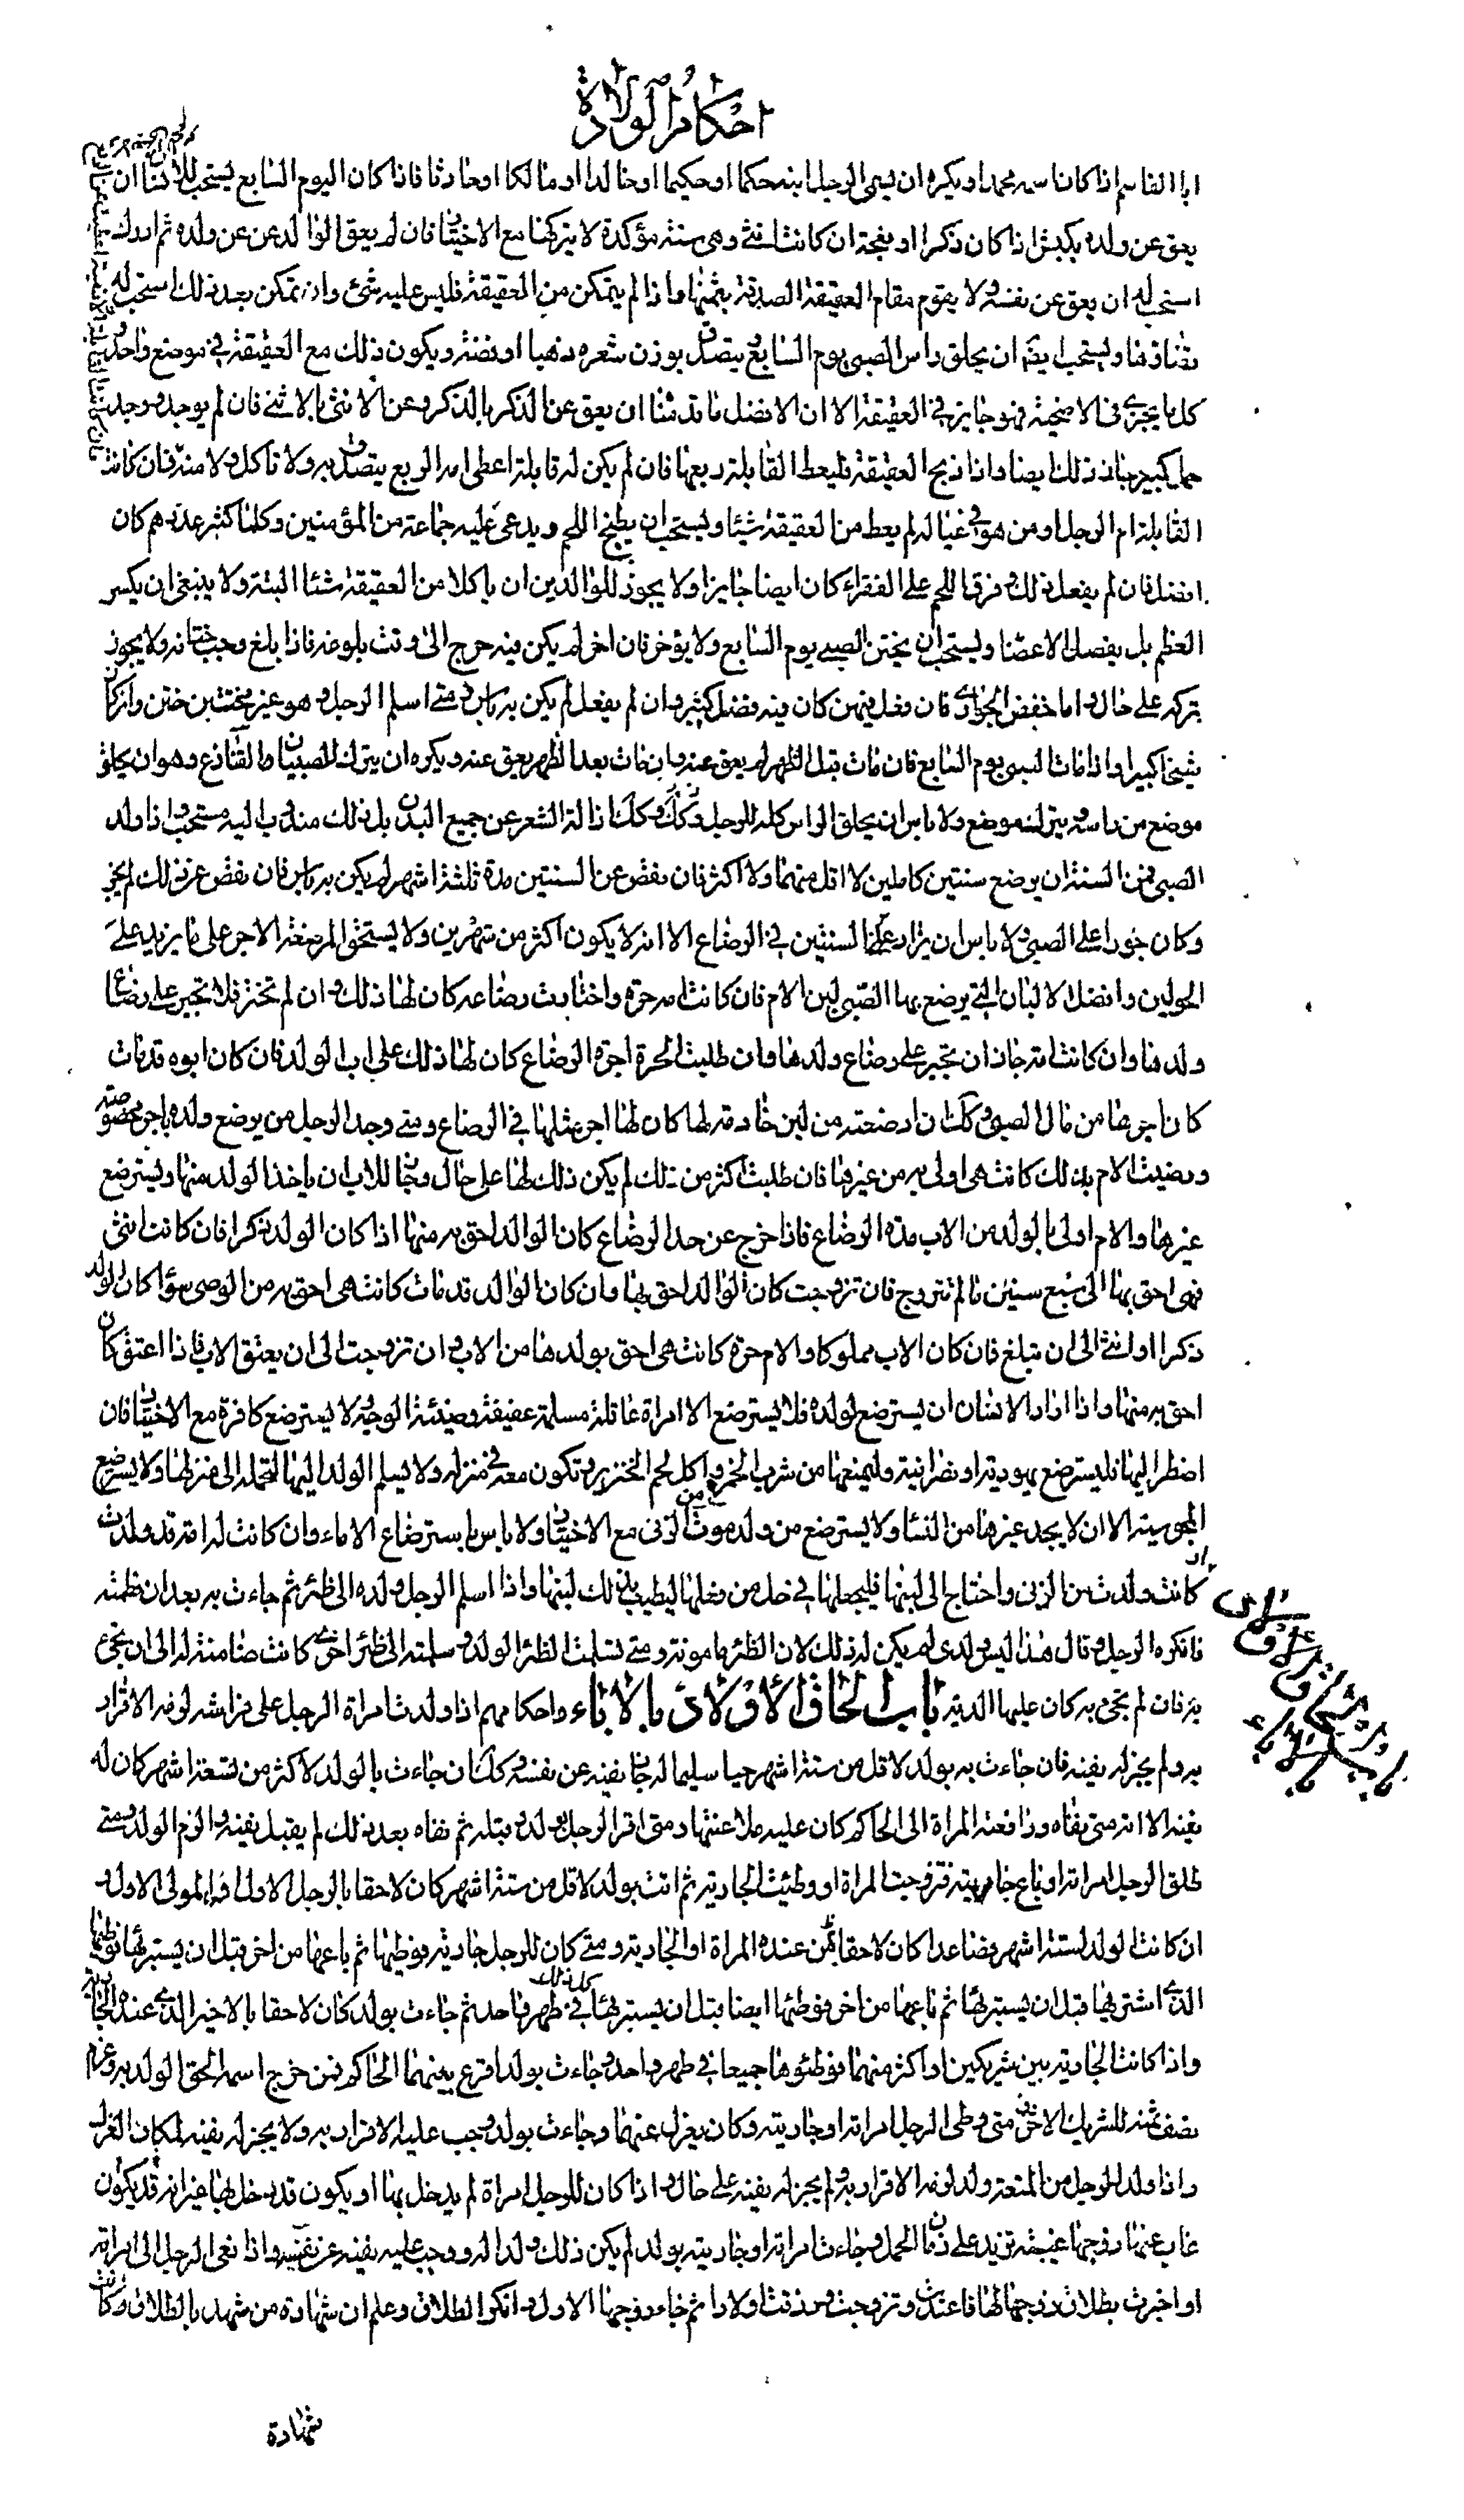 احكام الولادة
ابا القاسم اذا كان اسمه محمدا ويكره ان يسمى الرجل ابنه حكما او حكيما او خالدا او مالكا او حارثا فاذا كان اليوم السابع يستحب للانسان ان
يعق عن ولده بكبش اذا كان ذكرا او نعجة ان كانت انثى وهى سنة مؤكدة لا يتركها مع الاختيار فان لم يعق الوالد عن ولده ثم ادرك
استحب له ان يعق عن نفسه ولا يقوم مقام العقيقة الصدقة بثمنها واذا لم يتمكن من العقيقة فليس عليه شئ وان تمكن بعد ذلك استحب له
قضاؤها ويستحب ايضا ان يحلق راس الصبى يوم السابع ويتصدق بوزن شعره ذهبا او فضة ويكون ذلك مع العقيقة فى موضع واحد و
كل ما يجزى فى الاضحية فهو جايز فى العقيقة الا ان الافضل ما قدمنا ان يعق عن الذكر بالذكر وعن الانثى بالانثى فان لم يوجد ووجد
حمل كبير جاز ذلك ايضا واذا ذبح العقيقة فليعط القابلة ربعها فان لم يكن له قابلة اعطى امه الربع يتصدق به ولا تاكل هى منه فان كانت
القابلة ام الرجل او من هو فى عياله لم يعط من العقيقة شيئا ويستحب ان يطبخ اللحم ويدعى عليه جماعة من المؤمنين وكلما كثر عددهم كان
افضل فان لم يفعل ذلك وفرق اللحم على الفقراء كان ايضا جايزا ولا يجوز للوالدين ان ياكلا من العقيقة شئا البتة ولا ينبغى ان يكسر
العظم بل يفصل الاعضا ويستحب ان يختن الصبى يوم السابع ولا يؤخر فان اخر لم يكن فيه حرج الى وقت بلوغه فاذا بلغ وجب ختانه ولا يجوز
تركه على حال واما خفض الجوارى فان فعل فيهن كان فيه فضل كثير وان لم يفعل لم يكن به باس ومتى اسلم الرجل وهو غير مختتن ختن وان كان
شيخا كبيرا واذا مات الصبى يوم السابع فان مات قبل الظهر لم يعق عنه وان مات بعد الظهر يعق عنه ويكره ان يترك للصبيان القنازع وهو ان يحلق
موضع من راسه ويترك موضع ولا باس ان يحلق الراس كله للرجل وكذلك ازالة الشعر عن جميع البدن بل ذلك مندوب اليه مستحب واذا ولد
الصبى فمن السنة ان يرضع سنتين كاملين لا اقل منهما ولا اكثر فان نقص عن السنتين مدة ثلثة اشهر لم يكن به باس فان نقص عن ذلك لم يجز
وكان جورا على الصبى ولا باس ان يزاد على السنتين فى الرضاع الا انه لا يكون اكثر من شهرين ولا يستحق المرضعة الاجر على ما يزيد على
الحولين وافضل الالبان التى يرضع بها الصبى لبن الام فان كانت امه حرة واختارت رضاعه كان لها ذلك وان لم تختر فلا تجبر على رضاع
ولدها وان كانت امة جاز ان تجبر على رضاع ولدها وان طلبت الحرة اجرة الرضاع كان لها ذلك على اب الولد فان كان ابوه قد مات
كان اجرها من مال الصبى وكذلك ان ارضعته من لبن خادمة لها كان لها اجر مثلها فى الرضاع ومتى وجد الرجل من يرضع ولده باجر مخصوصة
ورضيت الام بذلك كانت هى اولى به من غيرها فان طلبت اكثر من ذلك لم يكن ذلك لها على حال وجاز للاب ان ياخذ الولد منها ويسترضع
غيرها والام اولى بالولد من الاب مدة الرضاع فاذا خرج عن حد الرضاع كان الوالد احق به منها اذا كان الولد ذكرا فان كانت انثى
فهى احق بها الى سبع سنين ما لم تتزوج فان تزوجت كان الوالد احق بها وان كان الوالد قد مات كانت هى احق به من الوصى سواء كان الولد
ذكرا او انثى الى ان يبلغ فان كان الاب مملوكا والام حرة كانت هى احق بولدها من الاب وان تزوجت الى ان يعتق الاب فاذا اعتق كان
احق به منها واذا اراد الانسان ان يسترضع لولده فلا يسترضع الا امراة عاقلة مسلمة عفيفة وضيئة الوجه ولا يسترضع كافرة مع الاختيار فان
اضطر اليها فليسترضع يهودية او نصرانية وليمنعها من شرب الخمر واكل لحم الخنزير وتكون معه فى منزله ولا يسلم الولد اليها لتحمله الى منزلها ولا يسترضع
المجوسية الا ان لا يجد غيرها من النساء ولا يسترضع من ولد من الزنى مع الاختيار ولا باس باسترضاع الاماء وان كانت له امة قد ولدت
او كانت ولدت من الزنى واحتاج الى لبنها فليجعلها فى حل من فعلها ليطيب بذلك لبنها واذا اسلم الرجل ولده الى ظئر ثم جاءت به بعد ان فطمته
فانكره الرجل وقال هذا ليس ولدى لم يكن له ذلك لان الظئر مامونة ومتى تسلمت الظئر الولد وسلمته الى ظئر اخرى كانت ضامنة له الى ان تجئ
به فان لم تجئ به كان عليها الدية باب الحاق الاولاد بالاباء واحكامهم اذا ولدت امراة الرجل على فراشه لزمه الاقرار
به ولم يجز له نفيه فان جاءت به بولد لاقل من ستة اشهر حيا سليما له جاز نفيه عن نفسه وكذلك ان جاءت بالولد لاكثر من تسعة اشهر كان له
نفيه الا انه متى نفاه ورافعته المراة الى الحاكم كان عليه ملاعنتها ومتى اقر الرجل بولد وقبله ثم نفاه بعد ذلك لم يقبل نفيه والزم الولد ومتى
طلق الرجل امراته او باع جاريته فتزوجت المراة او وطئت الجارية ثم اتت بولد لاقل من ستة اشهر كان لاحقا بالرجل الاول المولى الاول و
ان كانت الولد لستة اشهر فصاعدا كان لاحقا بمن عنده المراة او الجارية ومتى كان للرجل جارية فوطئها ثم باعها من اخر قبل ان يستبرئها فوطئها
الذى اشتريها قبل ان يستبرئها ثم باعها من اخر فوطئها ايضا قبل ان يستبرئها كل ذلك فى طهر واحد ثم جاءت بولد كان لاحقا بالاخير الذى عنده الجارية
واذا كانت الجارية بين شريكين او اكثر منهما فوطئوها جميعا فى طهر واحد وجاءت بولد اقرع بينهما الحاكم فمن خرج اسمه الحق الولد به وغرم
نصف ثمنه للشريك الاخر ومتى وطى الرجل امراته او جاريته وكان يعزل عنهما وجاءت بولد وجب عليه الاقرار به ولا يجز له نفيه لمكان العزل
واذا ولد للرجل من المتعة ولد لزمه الاقرار به ولم يجز له نفيه على حال واذا كان للرجل امراة لم يدخل بها او يكون قد دخل بها غير انه قد يكون
غاب عنها زوجها غيبة تزيد على زمان الحمل وجاءت امراته او جاريته بولد لم يكن ذلك ولدا له ووجب عليه نفيه عن نفسه واذا نعى الرجل الى امراته
او اخبرت بطلاق زوجها لها فاعتدت وتزوجت ورزقت اولادا ثم جاء زوجها الاول وانكر الطلاق وعلم ان شهادة من شهد بالطلاق كانت
شهادة
باب الحاق الاولاد بالاباء